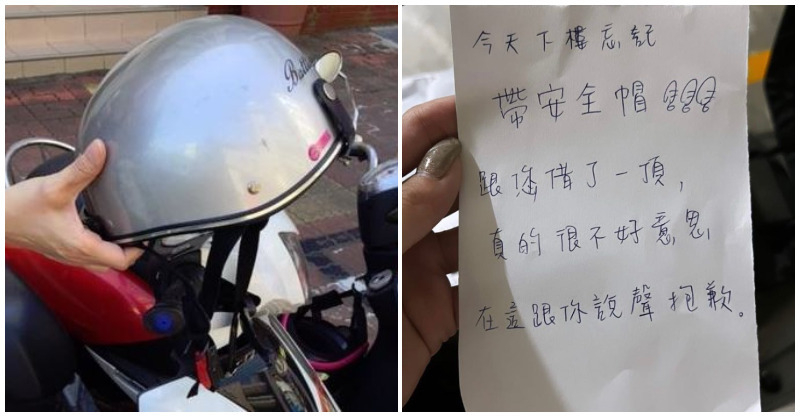 今天下樓忘記
帶安全帽
跟您借了一頂,
真的很不好意思
在這跟你說聲抱歉。